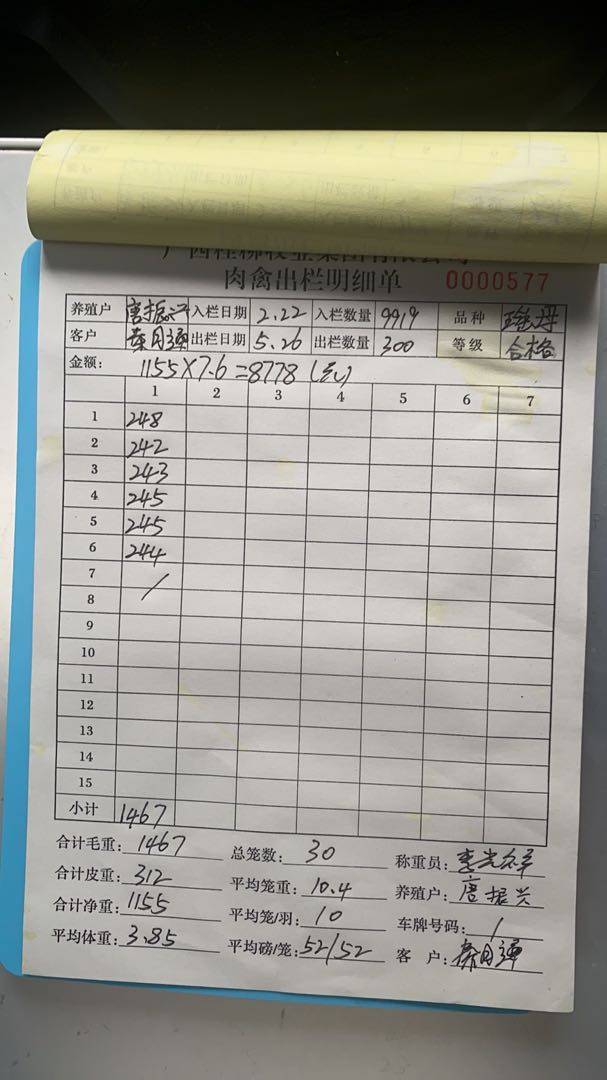 肉禽出栏明细单 0000577
养殖户 唐振兴 入栏日期 2.22 入栏数量 9919 品种
客户 出栏日期 5.26 出栏数量 300 等级 合格
金额: 1155×7.6=8778(元)
1 2 3 4 5 6 7
1 248
2 242
3 243
4 245
5 245
6 244
7 /
8
9
10
11
12
13
14
15
小计 1467
合计毛重: 1467 总笼数: 30 称重员:
合计皮重: 312 平均笼重: 10.4 养殖户: 唐振兴
合计净重: 1155 平均笼/羽: 10 车牌号码: /
平均体重: 3.85 平均磅/笼: 52/52 客户: